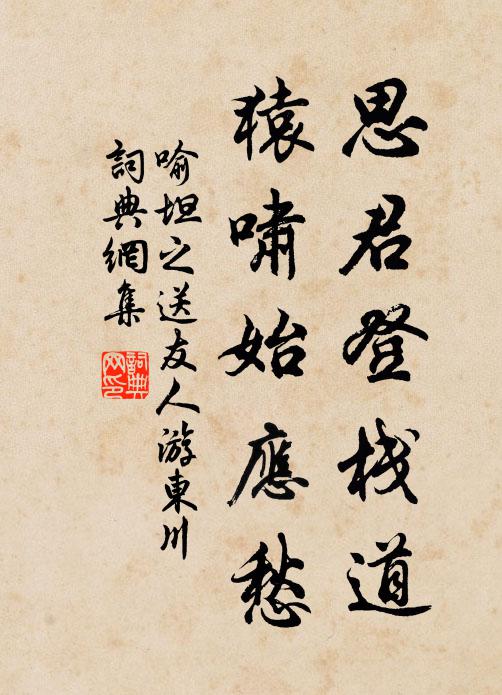 思君登栈道
猿啸始應愁
喻坦之送友人游東川
詞典網集
詞典网印